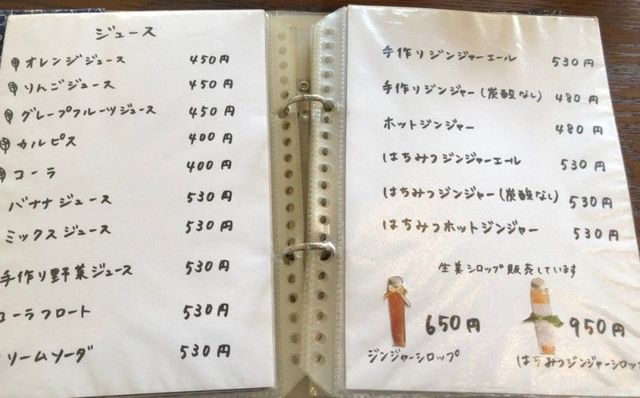 ジュース
オレンジジュース 450円
りんごジュース 450円
グレープフルーツジュース 450円
カルピス 400円
コーラ 400円
バナナジュース 530円
ミックスジュース 530円
手作り野菜ジュース 530円
コーラフロート 530円
リームソーダ 530円
手作りジンジャーエール 530円
手作りジンジャー(炭酸なし) 480円
ホットジンジャー 480円
はちみつジンジャーエール 530円
はちみつジンジャー(炭酸なし) 530円
はちみつホットジンジャー 530円
生姜シロップ販売しています
650円 950円
ジンジャーシロップ はちみつジンジャーシロップ